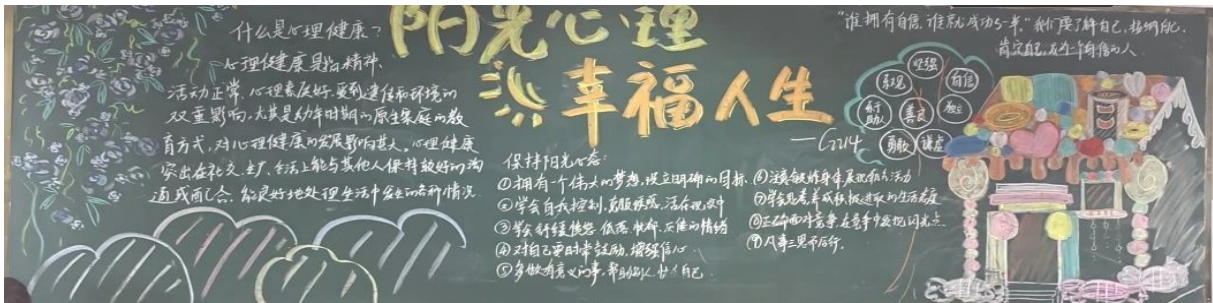 什么是心理健康?
心理健康是指精神、
活动正常、心理素质好、受到遗传和环境的
双重影响,尤其是幼年时期的原生家庭的教
育方式,对心理健康的发展影响甚大,心理健康
突出在社交、生产、生活上能与其他人保持较好的沟
通或配合,能良好地处理生活中发生的各种情况.
阳光心理
幸福人生
—G2114
保持阳光心态:
①拥有一个伟大的梦想,设立明确的目标.
②学会自我控制,克服疑惑,活在现实中
③学会舒缓愤怒、低落、忧郁、
④对自己要时常鼓励,增强信心
⑤多做有意义的事,帮助别人,
⑥
⑦学会思考养成积极进取的生活态度
⑧正确面对竞争,在竞争中发现闪光点
⑨凡事三思而后行.
"谁拥有自信,谁就成功了一半."我们要了解自己,接纳自己,
肯定自己,
坚强
乐观
自信
助人
善良
独立
勇敢
谦虚